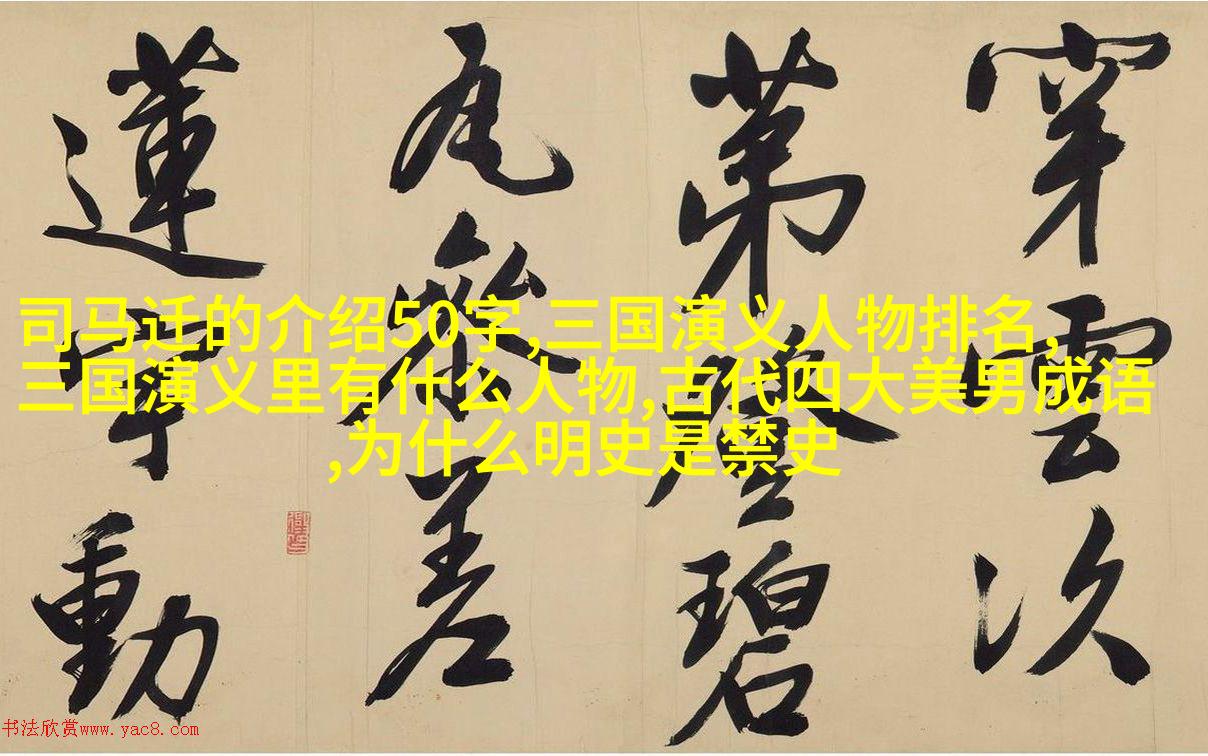 穿雲次
第碧
瓦參差
蓮宇動
司马迁的介绍50字,三国演义人物排名,
三国演义里有什么人物,古代四大美男成语
,为什么明史是禁史
书法欣赏www.yac8.com